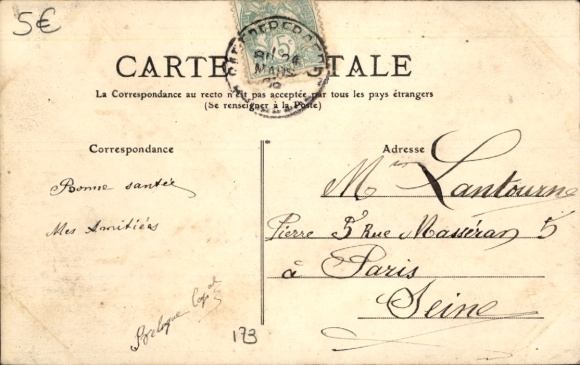 5€
CARTE POSTALE
La Correspondance au recto n'est pas acceptée par tous les pays étrangers
(Se renseigner à la Poste)
Correspondance
Bonne santée
Mes Amitiées
173
Adresse
Mr Lantourne
Pierre 5 Rue Masséran 5
à Paris
Seine